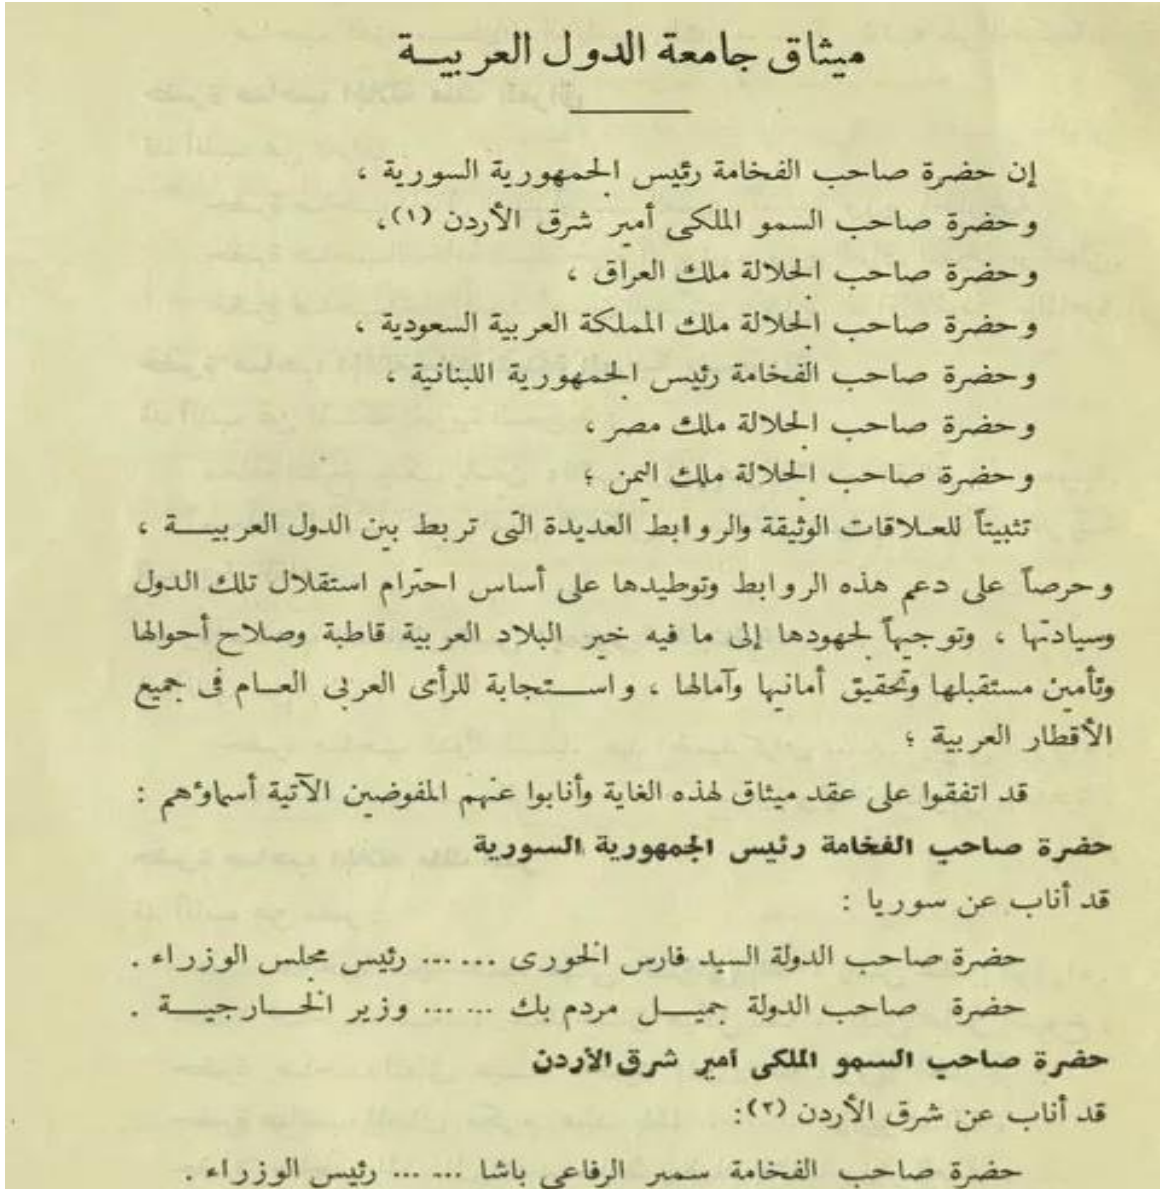 ميثاق جامعة الدول العربيــة
إن حضرة صاحب الفخامة رئيس الجمهورية السورية ،
وحضرة صاحب السمو الملكى أمير شرق الأردن (١)،
وحضرة صاحب الجلالة ملك العراق ،
وحضرة صاحب الجلالة ملك المملكة العربية السعودية ،
وحضرة صاحب الفخامة رئيس الجمهورية اللبنانية ،
وحضرة صاحب الجلالة ملك مصر ،
وحضرة صاحب الجلالة ملك اليمن ؛
تثبيتاً للعـلاقات الوثيقة والروابط العديدة التى تربط بين الدول العربيــة ،
وحرصاً على دعم هذه الروابط وتوطيدها على أساس احترام استقلال تلك الدول
وسيادتها ، وتوجيهاً لجهودها إلى ما فيه خير البلاد العربية قاطبة وصلاح أحوالها
وتأمين مستقبلها وتحقيق أمانيها وآمالها ، واســتجابة للرأى العربى العـام فى جميع
الأقطار العربية ؛
قد اتفقوا على عقد ميثاق لهذه الغاية وأنابوا عنهم المفوضين الآتية أسماؤهم :
حضرة صاحب الفخامة رئيس الجمهورية السورية
قد أناب عن سوريا :
حضرة صاحب الدولة السيد فارس الخورى ... ... رئيس مجلس الوزراء .
حضرة صاحب الدولة جميــل مردم بك ... ... وزير الخــارجيــة .
حضرة صاحب السمو الملكى أمير شرق الأردن
قد أناب عن شرق الأردن (٢):
حضرة صاحب الفخامة سمير الرفاعى باشا ... ... رئيس الوزراء .